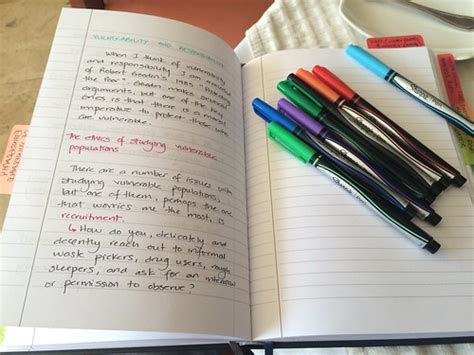 VULNERABILITY AND RESPONSIBILITY
When I think of vulnerability
and responsibility I am reminded
of Robert Goodin's 1985
the Poor. Goodin makes several
arguments but one of the key
ones is that there is a moral
imperative to protect those who
are vulnerable.
The ethics of studying vulnerable
populations
There are a number of issues with
studying vulnerable populations,
but one of them, perhaps the one
that worries me the most, is
recruitment.
↳ How do you, delicately and
decently reach out to informal
waste pickers, drug users, rough
sleepers, and ask for an interview
or permission to observe?